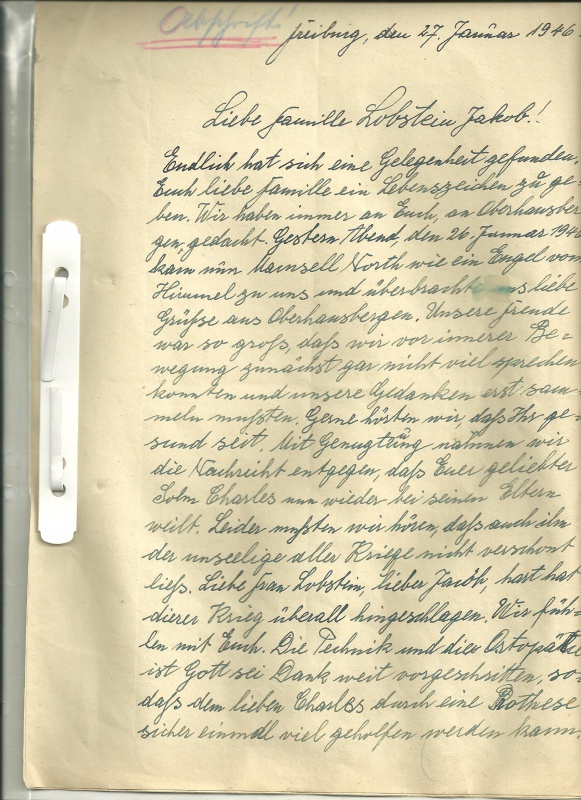 Abschrift!
Freiburg, den 27. Januar 1946.
Liebe Familie Lobstein Jakob!
Endlich hat sich eine Gelegenheit gefunden,
Euch liebe Familie ein Lebenszeichen zu ge-
ben. Wir haben immer an Euch, an Oberhausber
gen, gedacht. Gestern Abend, den 26. Januar 194
kam nun Mamsell North wie ein Engel vom
Himmel zu uns und überbrachte uns liebe
Grüße aus Oberhausbergen. Unsere Freude
war so groß, daß wir vor innerer Be-
wegung zunächst gar nicht viel sprechen
konnten und unsere Gedanken erst sam-
meln mußten. Gerne hörten wir, daß Ihr ge-
sund seit. Mit Genugtuung nahmen wir
die Nachricht entgegen, daß Euer geliebter
Sohn Charles nun wieder bei seinen Eltern
weilt. Leider mußten wir hören, daß auch ihn
der unseelige aller Kriege nicht verschont
ließ. Liebe Frau Lobstein, lieber Jacob, hart hat
dieser Krieg überall hingeschlagen. Wir füh-
len mit Euch. Die Technik und die Ostopätie
ist Gott sei Dank weit vorgeschritten, so-
daß dem lieben Charles durch eine Prothese
sicher einmal viel geholfen werden kann.